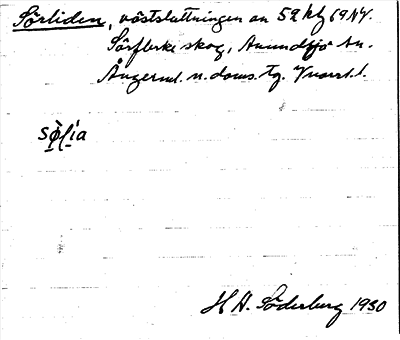 Sörliden, västsluttningen av 52 kbg 69 NV.
Sörflärke skog, Anundsjö sn.
Ångerml. n. doms. Tg.
sø̀lìa
H A. Söderberg 1930